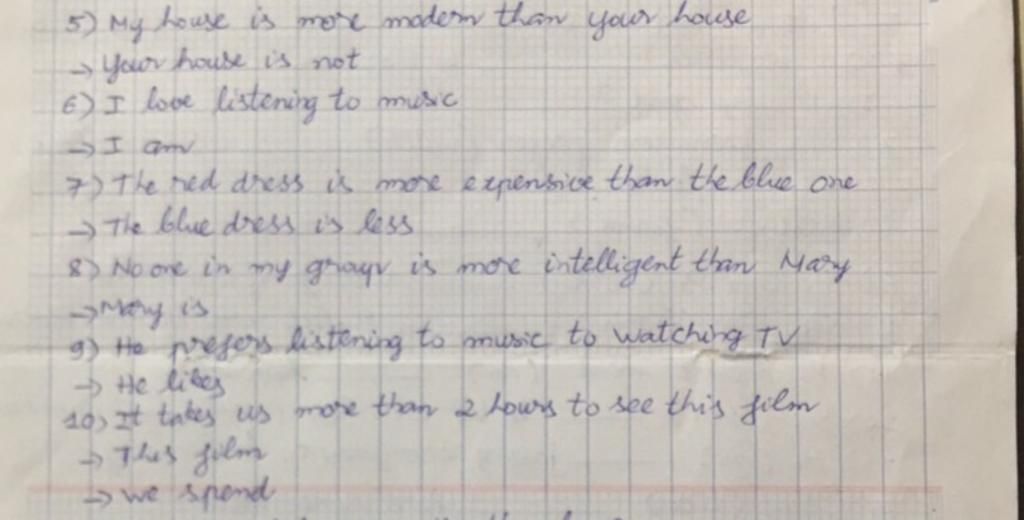 5) My house is more modern than your house
→ Your house is not
6) I love listening to music
→ I am
7) The red dress is more expensive than the blue one
→ The blue dress is less
8) No one in my group is more intelligent than Mary
→ Mary is
9) He prefers listening to music to watching TV
→ He likes
10) It takes us more than 2 hours to see this film
→ This film
→ We spend